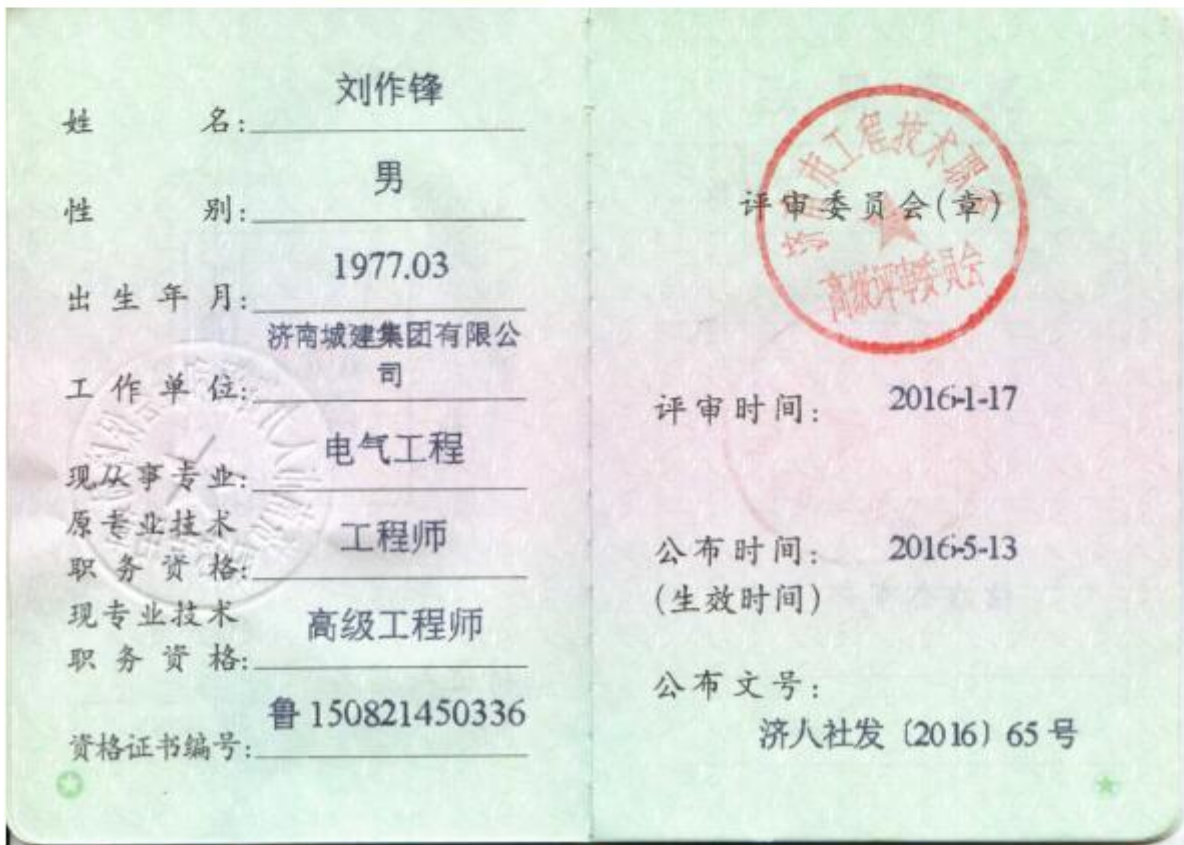 姓名:刘作锋
性别:男
出生年月:1977.03
工作单位:济南城建集团有限公
司
现从事专业:电气工程
原专业技术
职务资格:工程师
现专业技术
职务资格:高级工程师
资格证书编号:鲁 150821450336
评审委员会(章)
高级评审委员会
评审时间:2016-1-17
公布时间:2016-5-13
(生效时间)
公布文号:
济人社发〔2016〕65 号